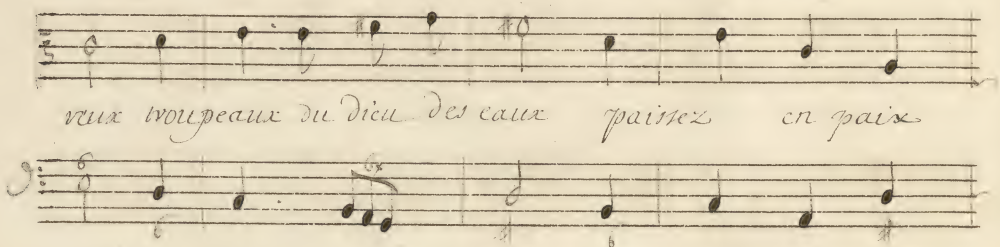 reux troupeaux du dieu des eaux paissez en paix